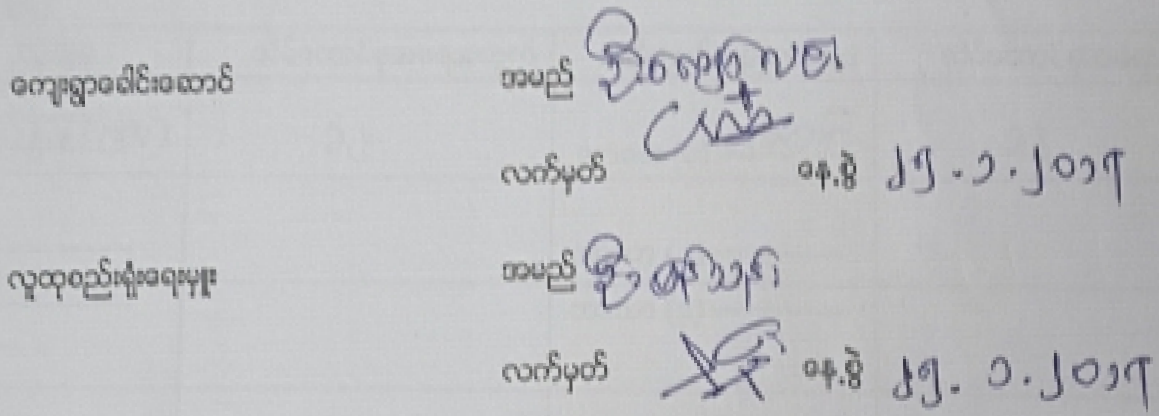 ကျေးရွာခေါင်းဆောင် အမည် ဦး
လက်မှတ် နေ့စွဲ ၂၅.၁.၂၀၁၅
လူထုစည်းရုံးရေးမှူး အမည် ဦး
လက်မှတ် နေ့စွဲ ၂၅.၁.၂၀၁၅